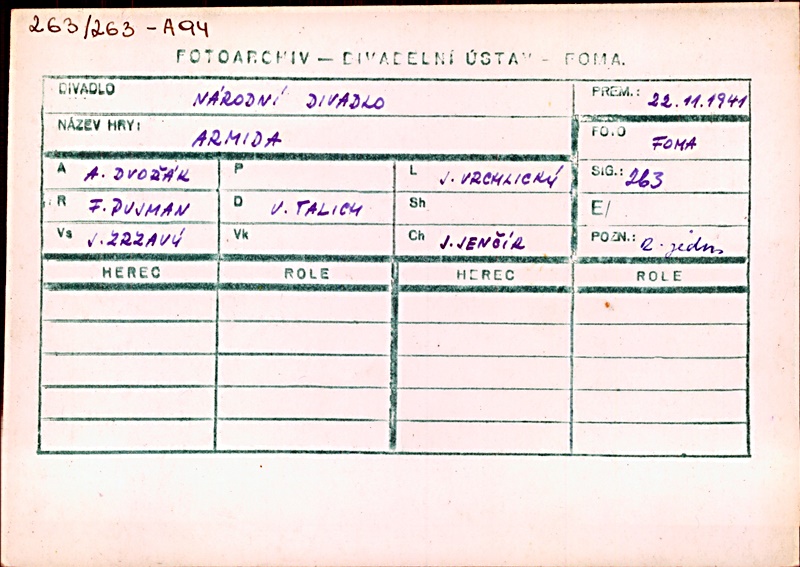 263/263 - A94
FOTOARCHIV — DIVADELNÍ ÚSTAV - FOMA.
DIVADLO NÁRODNÍ DIVADLO PREM.: 22.11.1941
NÁZEV HRY: ARMIDA FOTO FOMA
A A. DVOŘÁK P L J. VRCHLICKÝ SIG.: 263
R F. PUJMAN D V. TALICH Sh E/
Vs J. ZRZAVÝ Vk Ch J. JENČÍK POZN.:
HEREC ROLE HEREC ROLE